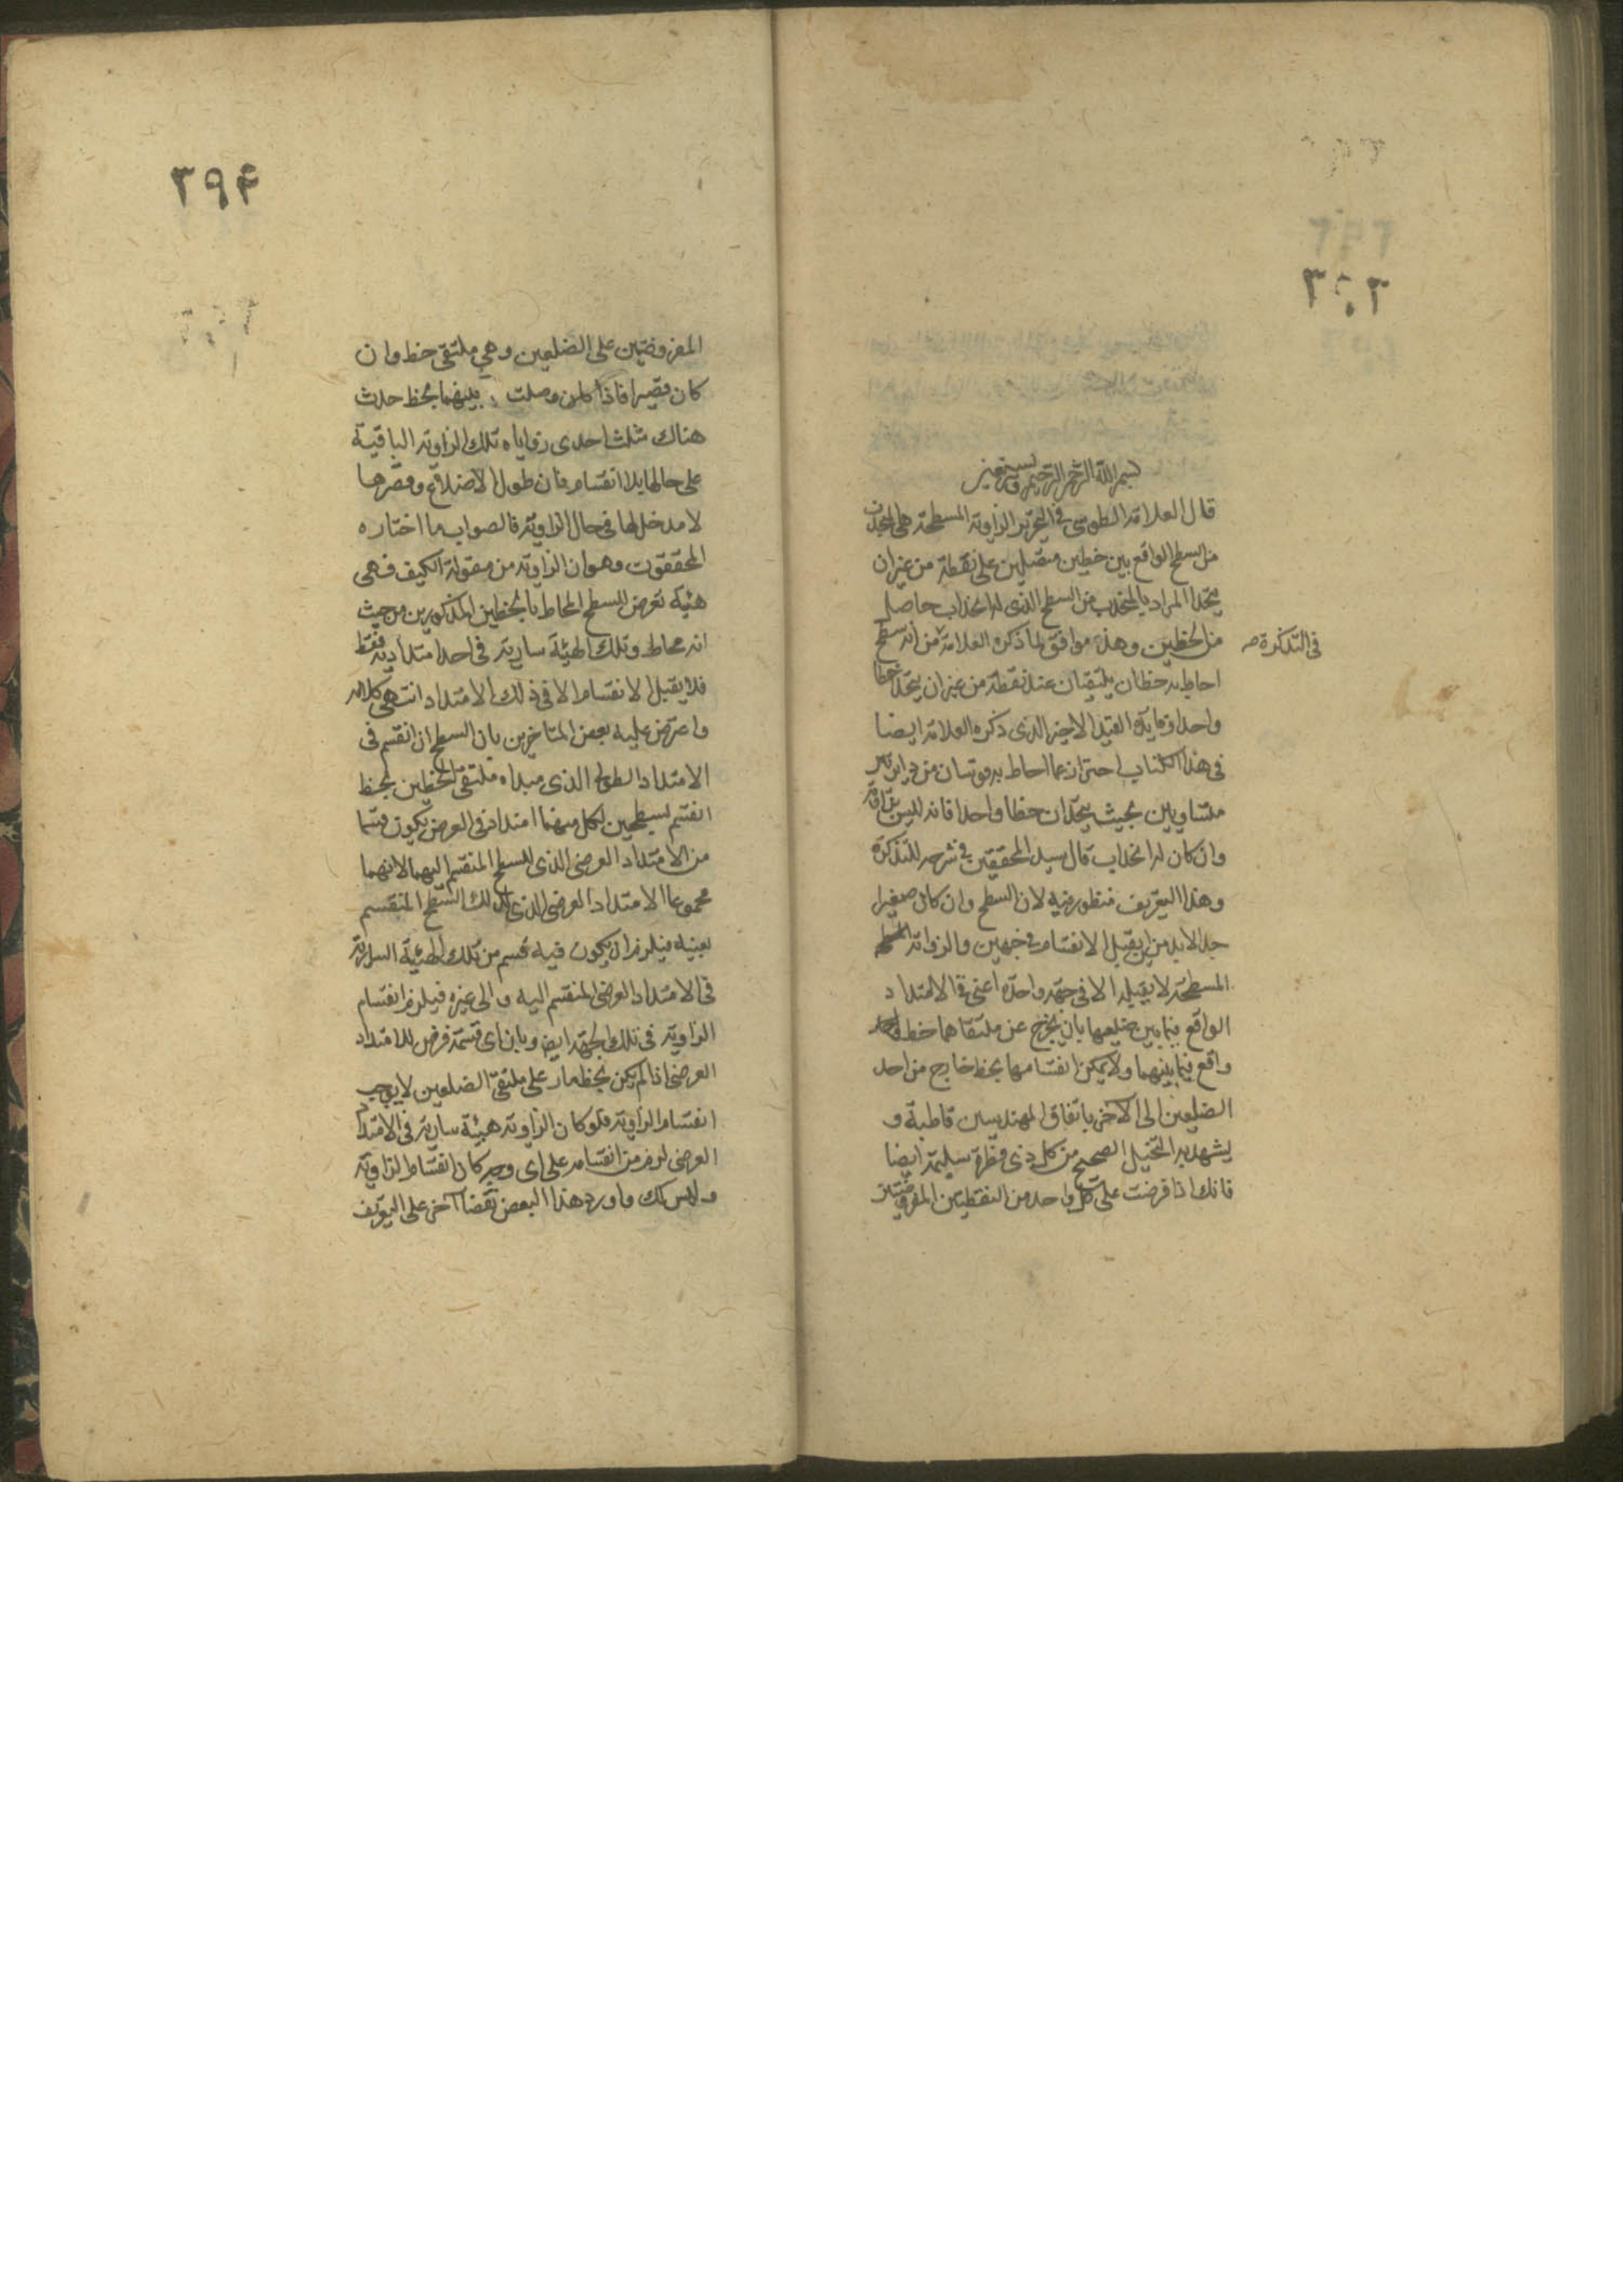 ٣٩٣
بسم الله الرحمن الرحيم وبه نستعين
قال العلامة الطوسي في التحرير الزاوية المسطحة هي المنحدب
من السطح الواقع بين خطين متصلين على نقطة من غير ان
يتحدا المراد بالمنحدب من السطح الذي له انحداب حاصل
من الخطين وهذا موافق لما ذكره العلامة من انه سطح
في التذكرة صح
احاط به خطان يلتقيان عند نقطة من غير ان يتحدا خطا
واحدا وفايدة القيد الاخير الذي ذكره العلامة ايضا
في هذا الكتاب احتراز عما احاط به قوسان من دايرتين
متساويين بحيث يتحدان خطا واحدا فانه ليس بزاوية
وان كان له انحداب قال سيد المحققين في شرحه للتذكرة
وهذا التعريف منظور فيه لان السطح وان كان صغيرا
جدا لابد من ان يقبل الانقسام في جهتين والزواية
المسطحة لا يقبله الا في جهة واحدة اعني في الامتداد
الواقع فيما بين ضلعيها بان يخرج عن ملتقاهما خط واحد
واقع فيما بينهما ولا يمكن انقسامها بخط خارج من احد
الضلعين الى الآخر باتفاق المهندسين قاطبة و
يشهد به التخيل الصحيح من كل ذي فطرة سليمة ايضا
فانك اذا فرضت على كل واحد من النقطتين المفروضتين
٣٩٤
المفروضتين على الضلعين وهي ملتقى خط وان
كان قصيرا فاذا وصلت بينهما بخط حدث
هناك مثلث احدى زواياه تلك الزاوية الباقية
على حالها بلا انقسام فان طول الاضلاع وقصرها
لا مدخل لها في حال الزاوية فالصواب ما اختاره
المحققون وهو ان الزاوية من مقولة الكيف فهي
هيئة تعرض للسطح المحاط بالخطين المذكورين من حيث
انه محاط وتلك الهيئة سارية في احد امتداديه فقط
فلا يقبل الانقسام الا في ذلك الامتداد انتهى كلامه
واعترض عليه بعض المتاخرين بان السطح اذا انقسم في
الامتداد الطولي الذي مبداه ملتقى الخطين بخط
انقسم لسطحين لكل منهما امتداد في العرض يكون قسما
من الامتداد العرضي الذي للسطح المنقسم اليهما لانهما
مجموعا الامتداد العرضي الذي لذلك السطح المنقسم
بعينه فيلزم ان يكون فيه قسم من تلك الهيئة السارية
في الامتداد العرضي المنقسم اليه والى غيره فيلزم انقسام
الزاوية في تلك الجهة ايض وبان اى قسمة فرض للامتداد
العرضي اذا لم يكن بخط مار على ملتقى الضلعين لا يوجب
انقسام الزاوية فلو كان الزاوية هيئة سارية في الامتداد
العرضي لزم من انقسامه على اى وجه كان انقسام الزاوية
وليس كك واورد هذا البعض نقضا آخر على التعريف